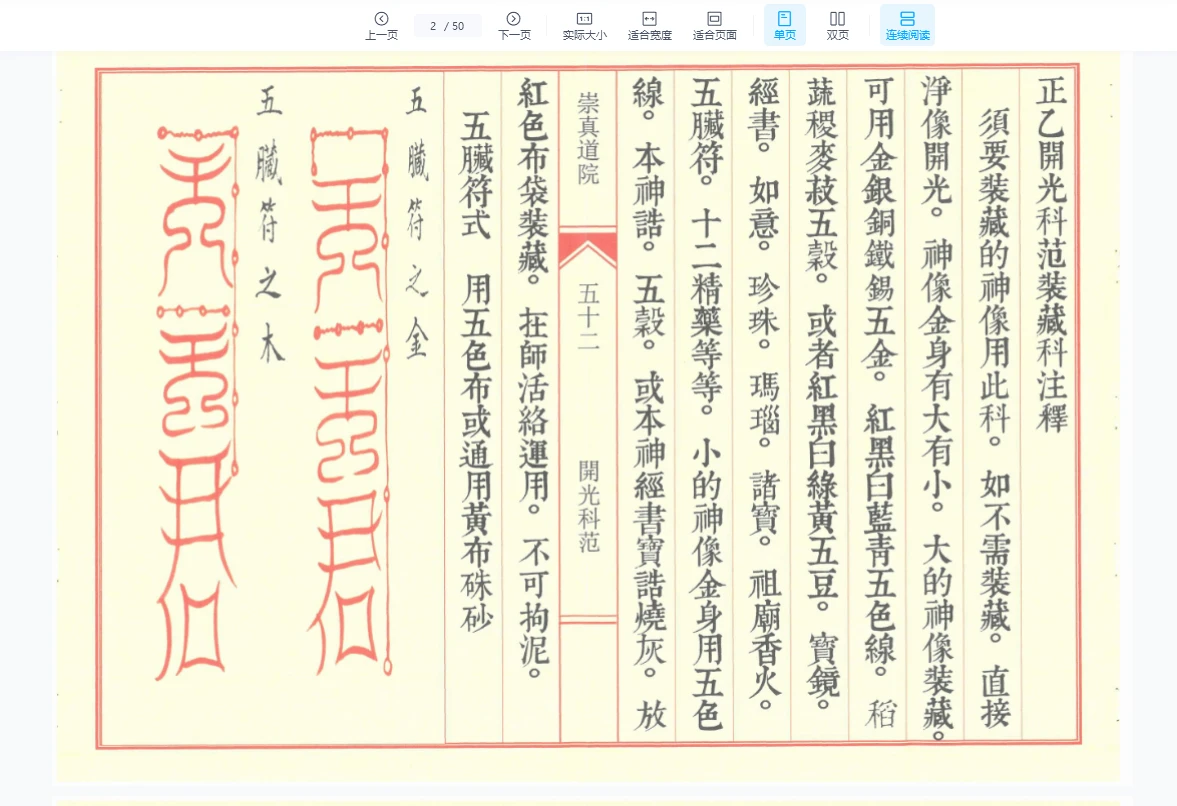 上一页
2 / 50
下一页
1:1
实际大小
适合宽度
适合页面
单页
双页
连续阅读
正乙開光科范裝藏科注釋
須要裝藏的神像用此科。如不需裝藏。直接
淨像開光。神像金身有大有小。大的神像裝藏。
可用金銀銅鐵錫五金。紅黑白藍青五色線。稻
蔬稷麥菽五穀。或者紅黑白綠黃五豆。寶鏡。
經書。如意。珍珠。瑪瑙。諸寶。祖廟香火。
五臟符。十二精藥等等。小的神像金身用五色
線。本神誥。五穀。或本神經書寶誥燒灰。放
崇真道院
五十二
開光科范
紅色布袋裝藏。在師活絡運用。不可拘泥。
五臟符式 用五色布或通用黃布硃砂
五臟符之金
五臟符之木